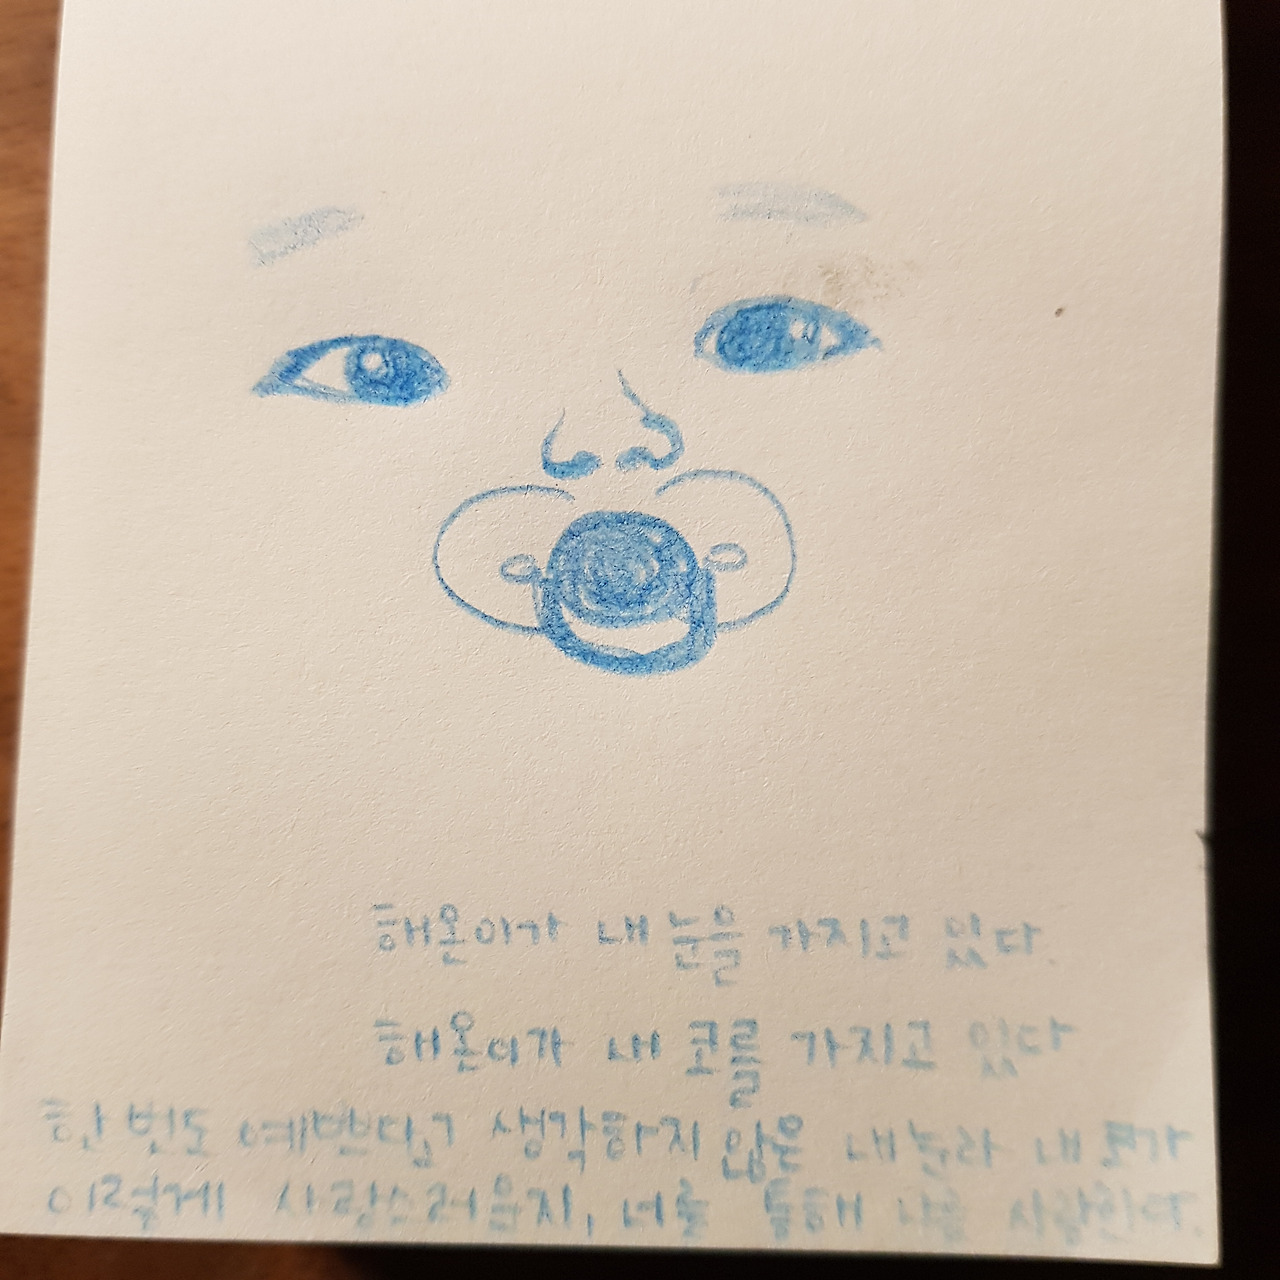 해온이가 내 눈을 가지고 있다.
해온이가 내 코를 가지고 있다
한 번도 예쁘다고 생각하지 않은 내 눈과 내 코가
이렇게 사랑스러운지, 너를 통해 나를 사랑한다.